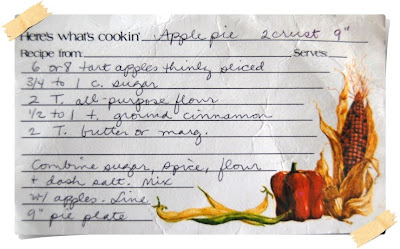 Here's what's cookin' Apple pie 2 crust 9"
Recipe from: Serves:
6 or 8 tart apples thinly sliced
3/4 to 1 c. sugar
2 T. all-purpose flour
1/2 to 1 t. ground cinnamon
2 T. butter or marg.
Combine sugar, spice, flour
+ dash salt. Mix
w/ apples. Line
9" pie plate